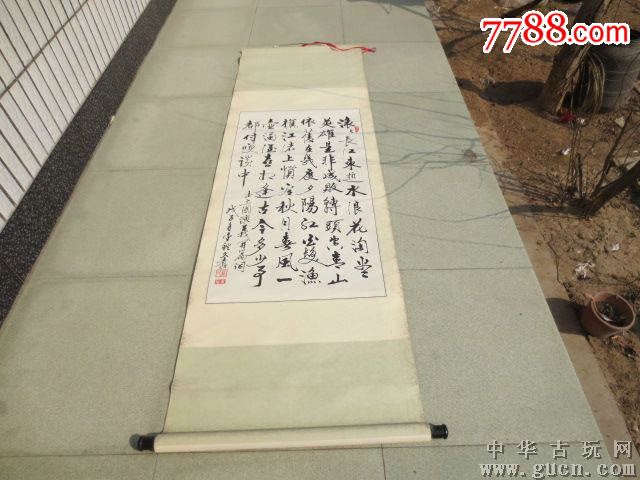 7788.com
滚滚长江东逝水浪花淘尽
英雄是非成败转头空青山
依旧在几度夕阳红白发渔
樵江渚上惯看秋月春风一
壶浊酒喜相逢古今多少事
都付笑谈中
三国演义开篇词
中华古玩网
www.gucn.com